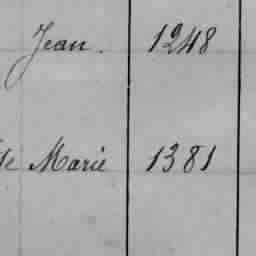 Jean. 1248
Marie 1381